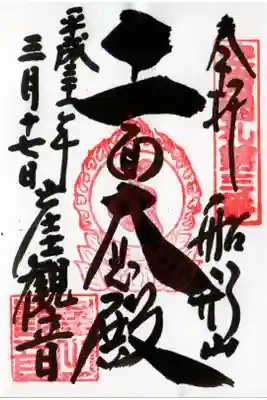 奉拝
船形山
十一面大悲殿
平成二十七年
三月十七日
崖觀音